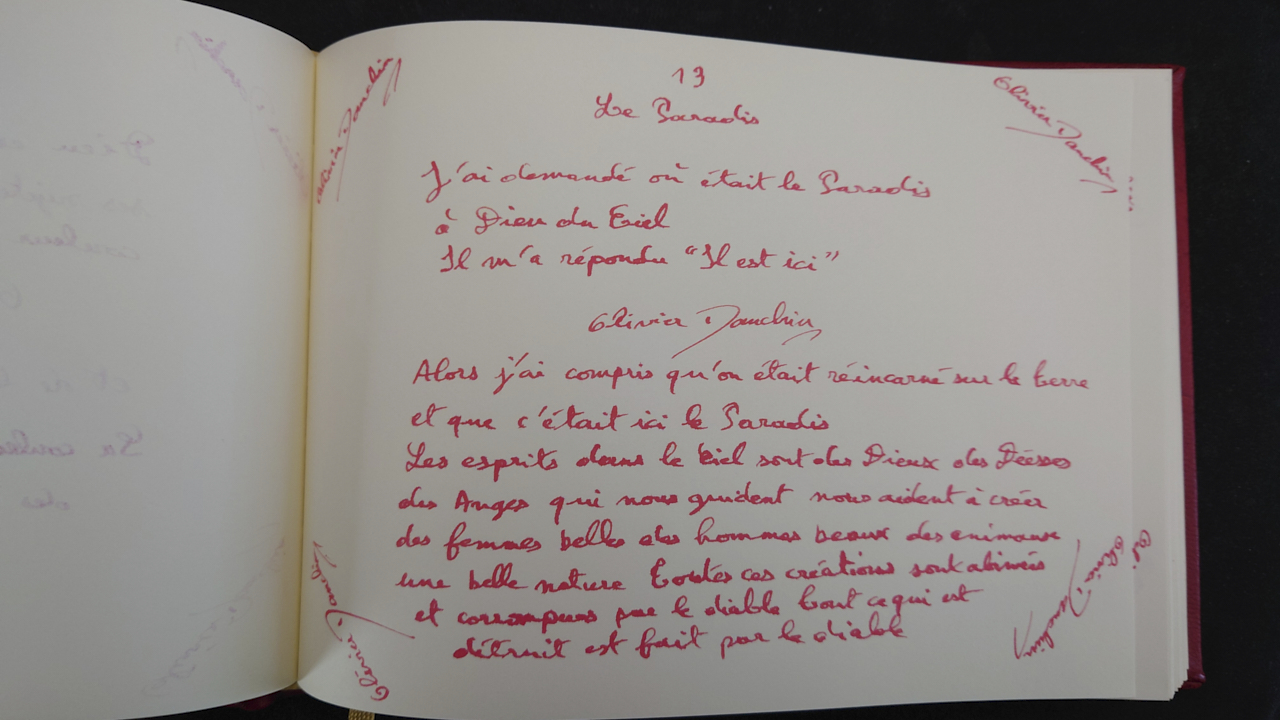 13
Le Paradis
J'ai demandé où était le Paradis
à Dieu du Ciel
Il m'a répondu "Il est ici"
Olivier Dauchin
Alors j'ai compris qu'on était réincarné sur la terre
et que c'était ici le Paradis
Les esprits dans le Ciel sont des Dieux des Déesses
des Anges qui nous guident nous aident à créer
des femmes belles des hommes beaux des animaux
une belle nature Toutes ces créations sont abimés
et corrompues par le diable tout ce qui est
détruit est fait par le diable
Olivier Dauchin
Olivier Dauchin
Olivier Dauchin
Olivier Dauchin